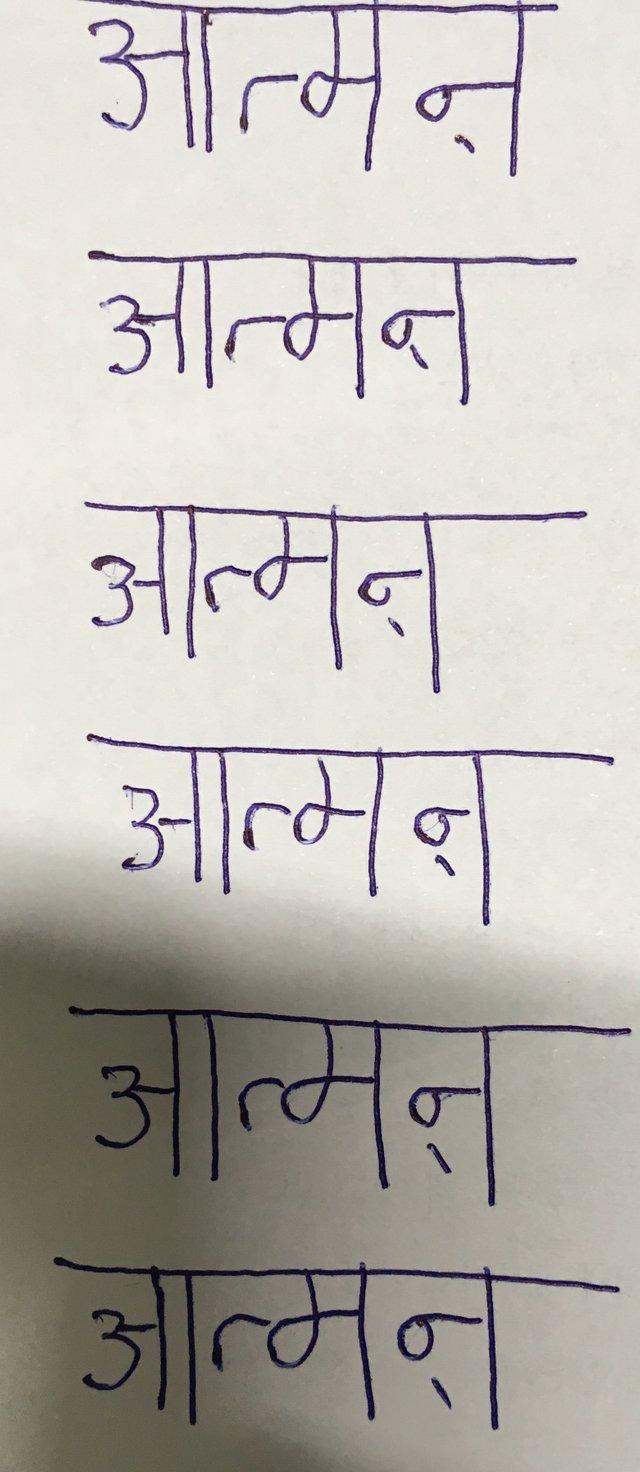 आत्मन्
आत्मन्
आत्मन्
आत्मन्
आत्मन्
आत्मन्